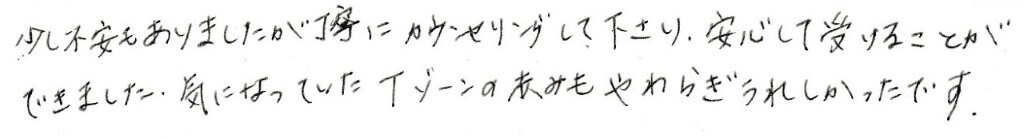 少し不安もありましたが丁寧にカウンセリングして下さり、安心して受けることが
できました。気になっていたTゾーンの赤みもやわらぎうれしかったです。